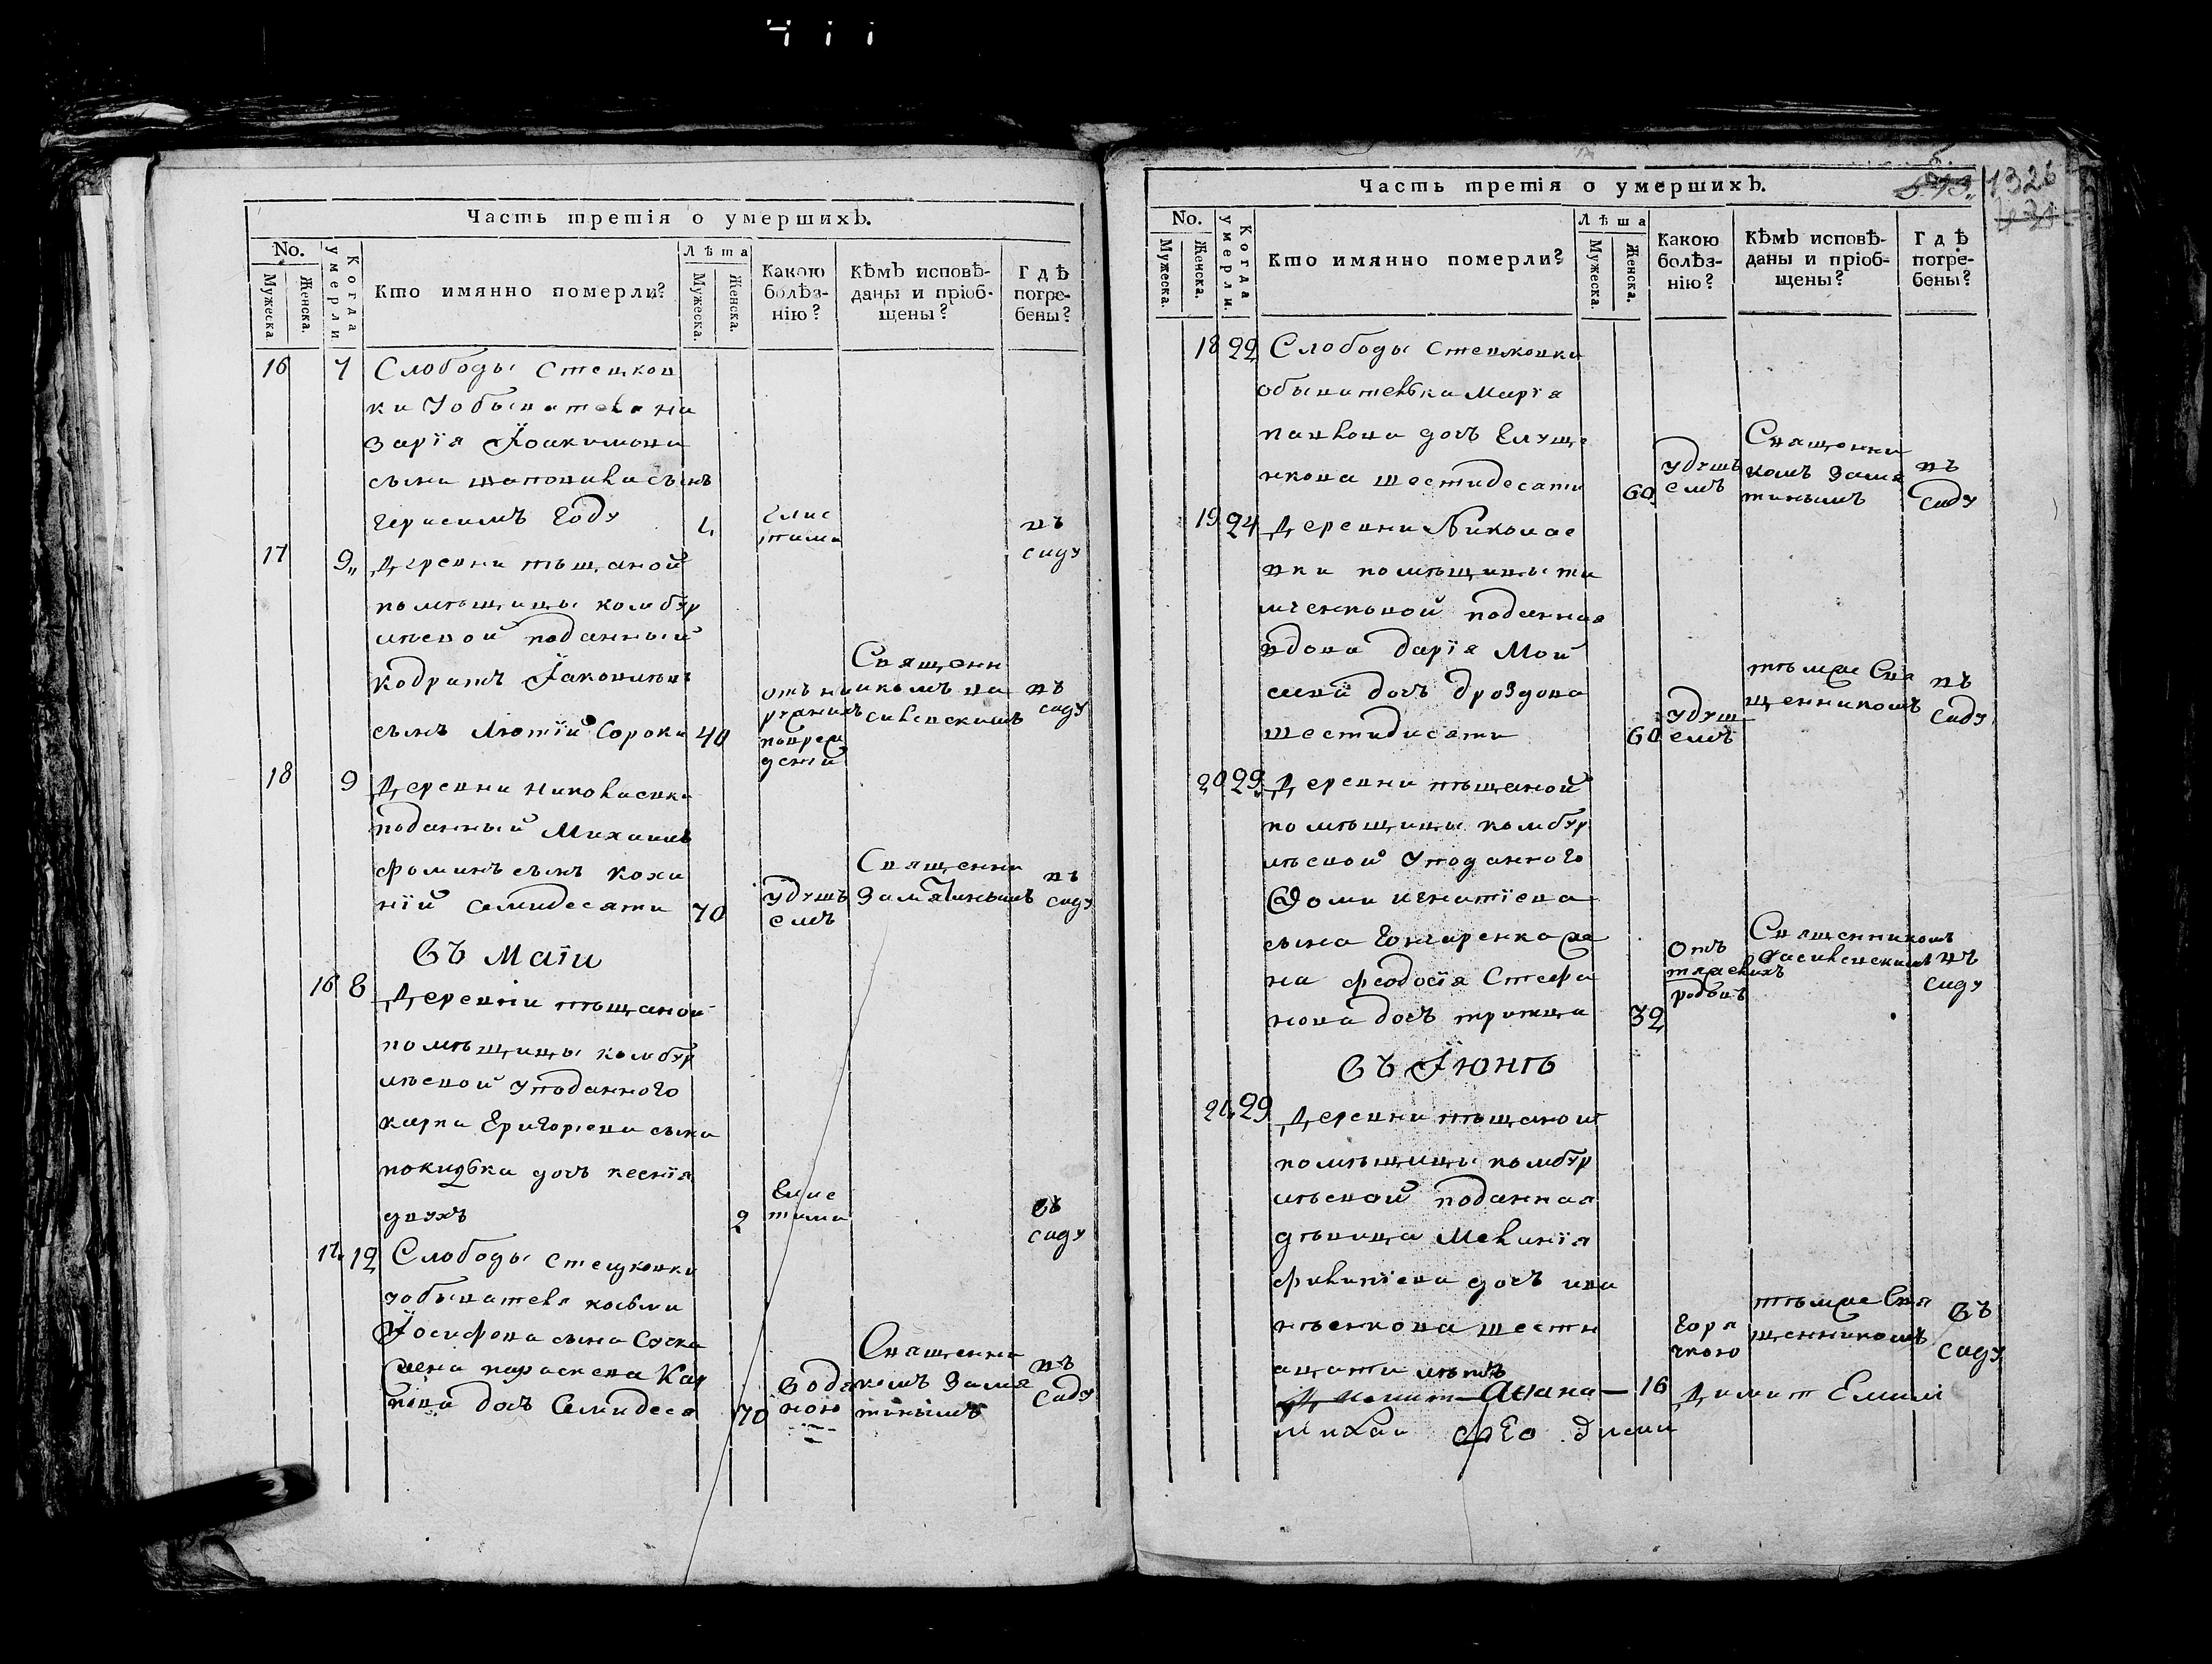 Часть третія о умершихъ.
No. Мужеска Женска. Когда умерли Кто имянно померли? Лѣта Мужеска. Женска. Какою болѣзнію? Кѣмъ исповѣданы и пріобщены? Гдѣ погребены?
16 7 Слободы Стецков
ки уобывателя На
зарія Іоакимова
сына шаповала сынъ
Герасимъ году 1 глис
тами въ
саду
17 9 Деревни тѣщаной
помѣщицы комбур
лѣевой поданный
кодратъ Іаковлевъ
сынъ Лютій Сорока 40
от на
ружнихъ
повреж
деній
Священ
никомъ ва
силевскимъ
въ
саду
18 9 Деревни николаевки
поданный Михаилъ
фоминъ сынъ коха
ній семидесяти 70
удушъ
емъ
Священни
Замятинымъ
въ
саду
Въ Маіи
16 8 Деревни тѣщаной
помѣщицы комбур
лѣевой уподанного
карпа Григоріева сына
дочъ ксенія
двухъ 2
глис
тами
въ
саду
17 12 Слободы Стецковки
уобывателя косьми
Іосифова сына
жена параскева Кар
пова дочъ Семидеся 70
водя
ною
Священни
комъ Замя
тинымъ
въ
саду
Часть третія о умершихъ.
1326
No. Мужеска. Женска. Когда умерли. Кто имянно померли? Лѣта Мужеска. Женска. Какою болѣзнію? Кѣмъ исповѣданы и пріобщены? Гдѣ погребены?
18 22 Слободы Стецковки
обывателька Марія
павлова дочъ
шестидесати 60
удушъ
емъ
Священни
комъ Замя
тинымъ
въ
саду
19 24 Деревни Николае
вки помѣщицы ти
мченковой поданная
вдова дарія Мои
сеева дочъ дроздова
шестидисяти 60
удуш
емъ
тѣмже Свя
щенникомъ
въ
саду
20 29 Деревни тѣщаной
помѣщицы комбур
лѣевой уподанного
Фоми игнатіева
сына Гончаренка же
на феодосія Стефа
нова дочъ тритца 32
отъ
тяжкихъ
родовъ
Священникомъ
Василевскимъ
въ
саду
Въ Іюнѣ
21 29 Деревни тѣщаной
помѣщицы комбур
лѣевой поданная
дѣвица Меланія
филипіева дочъ ива
нѣенкова шестн
ацати лѣтъ 16
горя
чкою
тѣмже Свя
щенникомъ
въ
саду